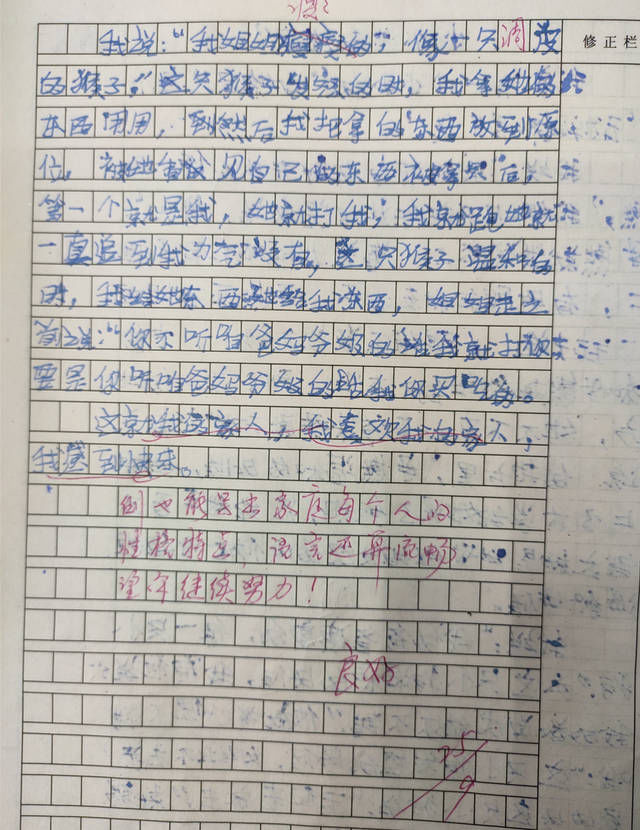 修正栏
我说：“我姐姐瘦瘦的，像一只调皮
的猴子。”这只猴子发毅的时，我拿她的
东西用用，然后我把拿的东西放到原
位，被她看见自己的东西被拿走后，
第一个就是我，她就打我，我就跑她就
一直追到我力气没有，这只猴子温和的
时，我给她东西她给我东西，姐姐走之
前说：“你不听爸妈爷奶的话我就打你
要是你听爸妈爷奶的话我给你买吃的。
这就是我的家人，我喜欢我的家人，
我感到快乐。
倒也能写出家庭每个人的
性格特点，语言还算流畅
望今继续努力！
良好
25/9